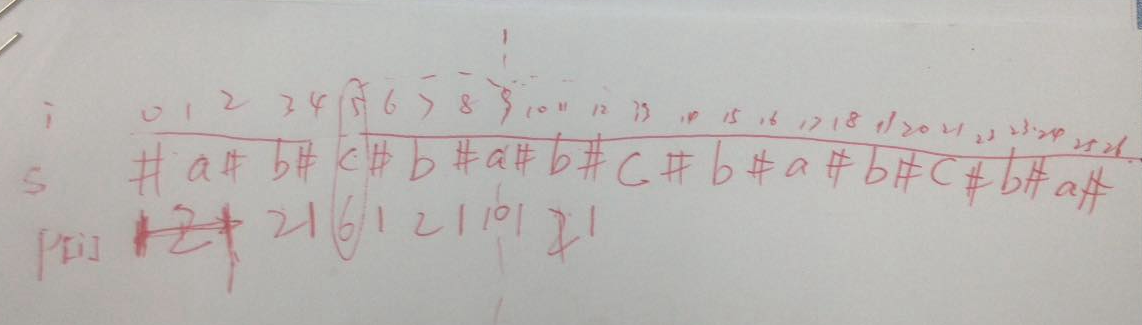 i 0 1 2 3 4 5 6 7 8 9 10 11 12 13 14 15 16 17 18 19 20 21 22 23 24 25 26
S # a # b # c # b # a # b # C # b # a # b # C # b # a #
P[i] 1 2 1 2 1 6 1 2 1 10 1 2 1